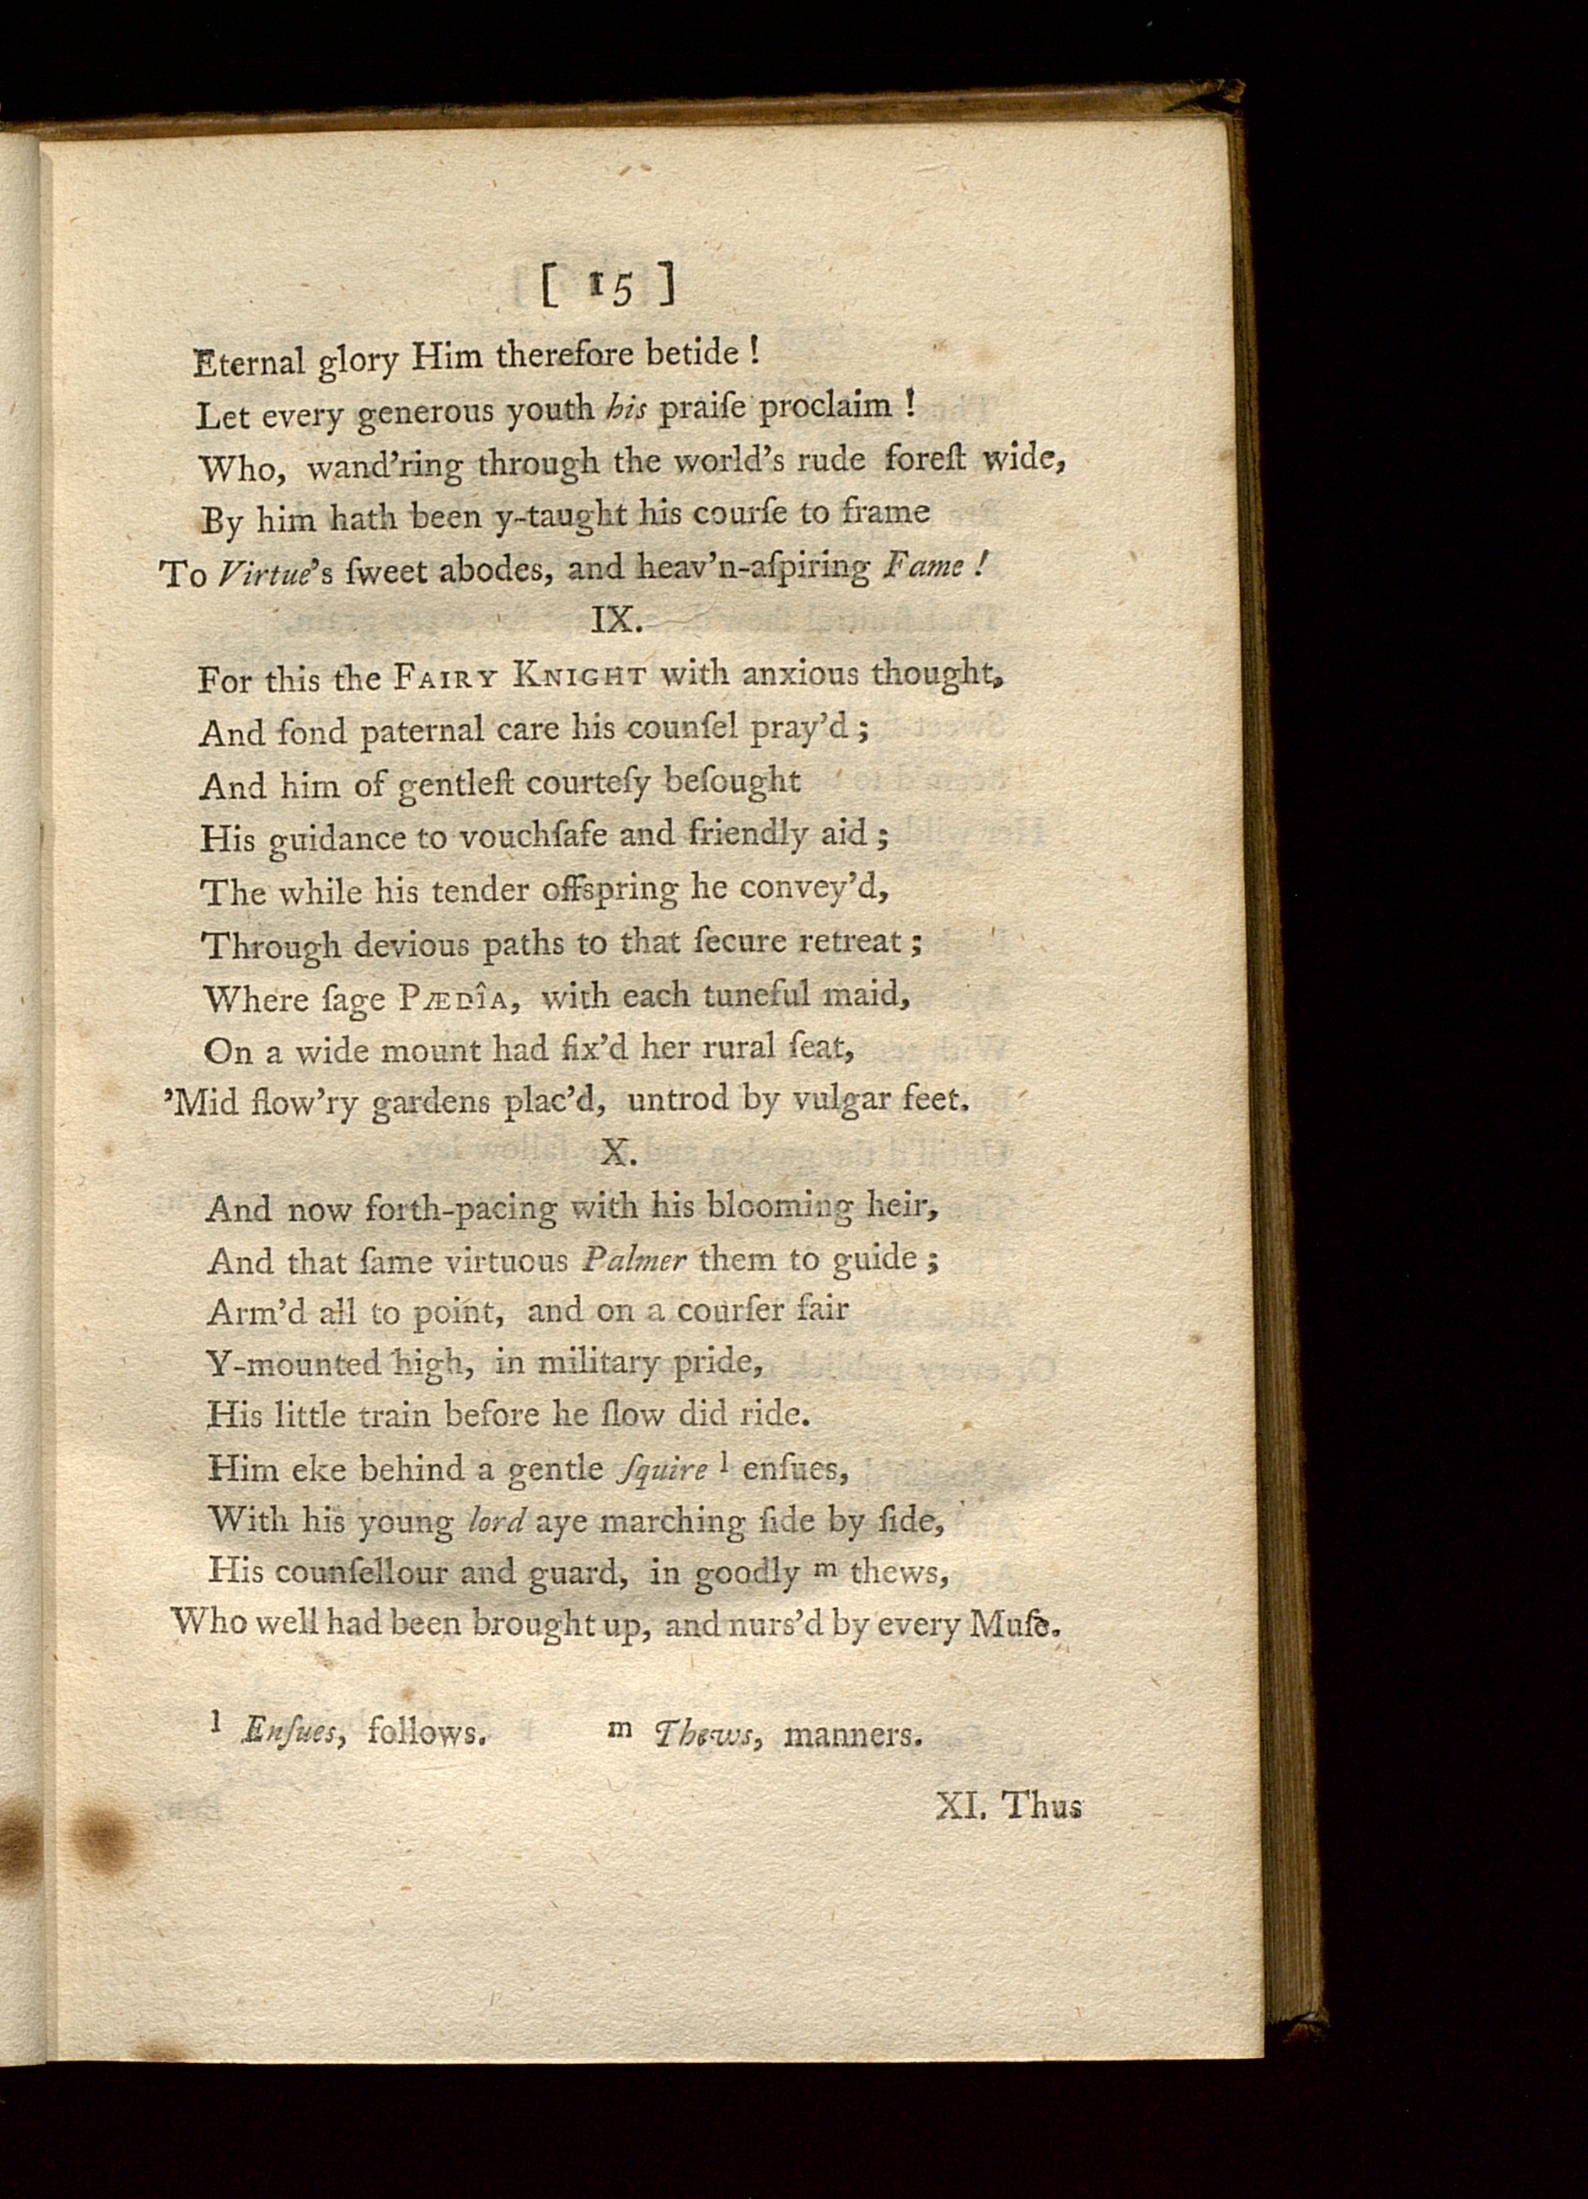 [ 15 ]
Eternal glory Him therefore betide !
Let every generous youth his praiſe proclaim !
Who, wand'ring through the world's rude foreſt wide,
By him hath been y-taught his courſe to frame
To Virtue's ſweet abodes, and heav'n-aſpiring Fame !
IX.
For this the FAIRY KNIGHT with anxious thought,
And fond paternal care his counſel pray'd ;
And him of gentleſt courteſy beſought
His guidance to vouchſafe and friendly aid ;
The while his tender offspring he convey'd,
Through devious paths to that ſecure retreat ;
Where ſage PÆDÎA, with each tuneful maid,
On a wide mount had fix'd her rural ſeat,
'Mid flow'ry gardens plac'd, untrod by vulgar feet.
X.
And now forth-pacing with his blooming heir,
And that ſame virtuous Palmer them to guide ;
Arm'd all to point, and on a courſer fair
Y-mounted high, in military pride,
His little train before he ſlow did ride.
Him eke behind a gentle ſquire l enſues,
With his young lord aye marching ſide by ſide,
His counſellour and guard, in goodly m thews,
Who well had been brought up, and nurs'd by every Muſe.
l Enſues, follows. m Thews, manners.
XI. Thus